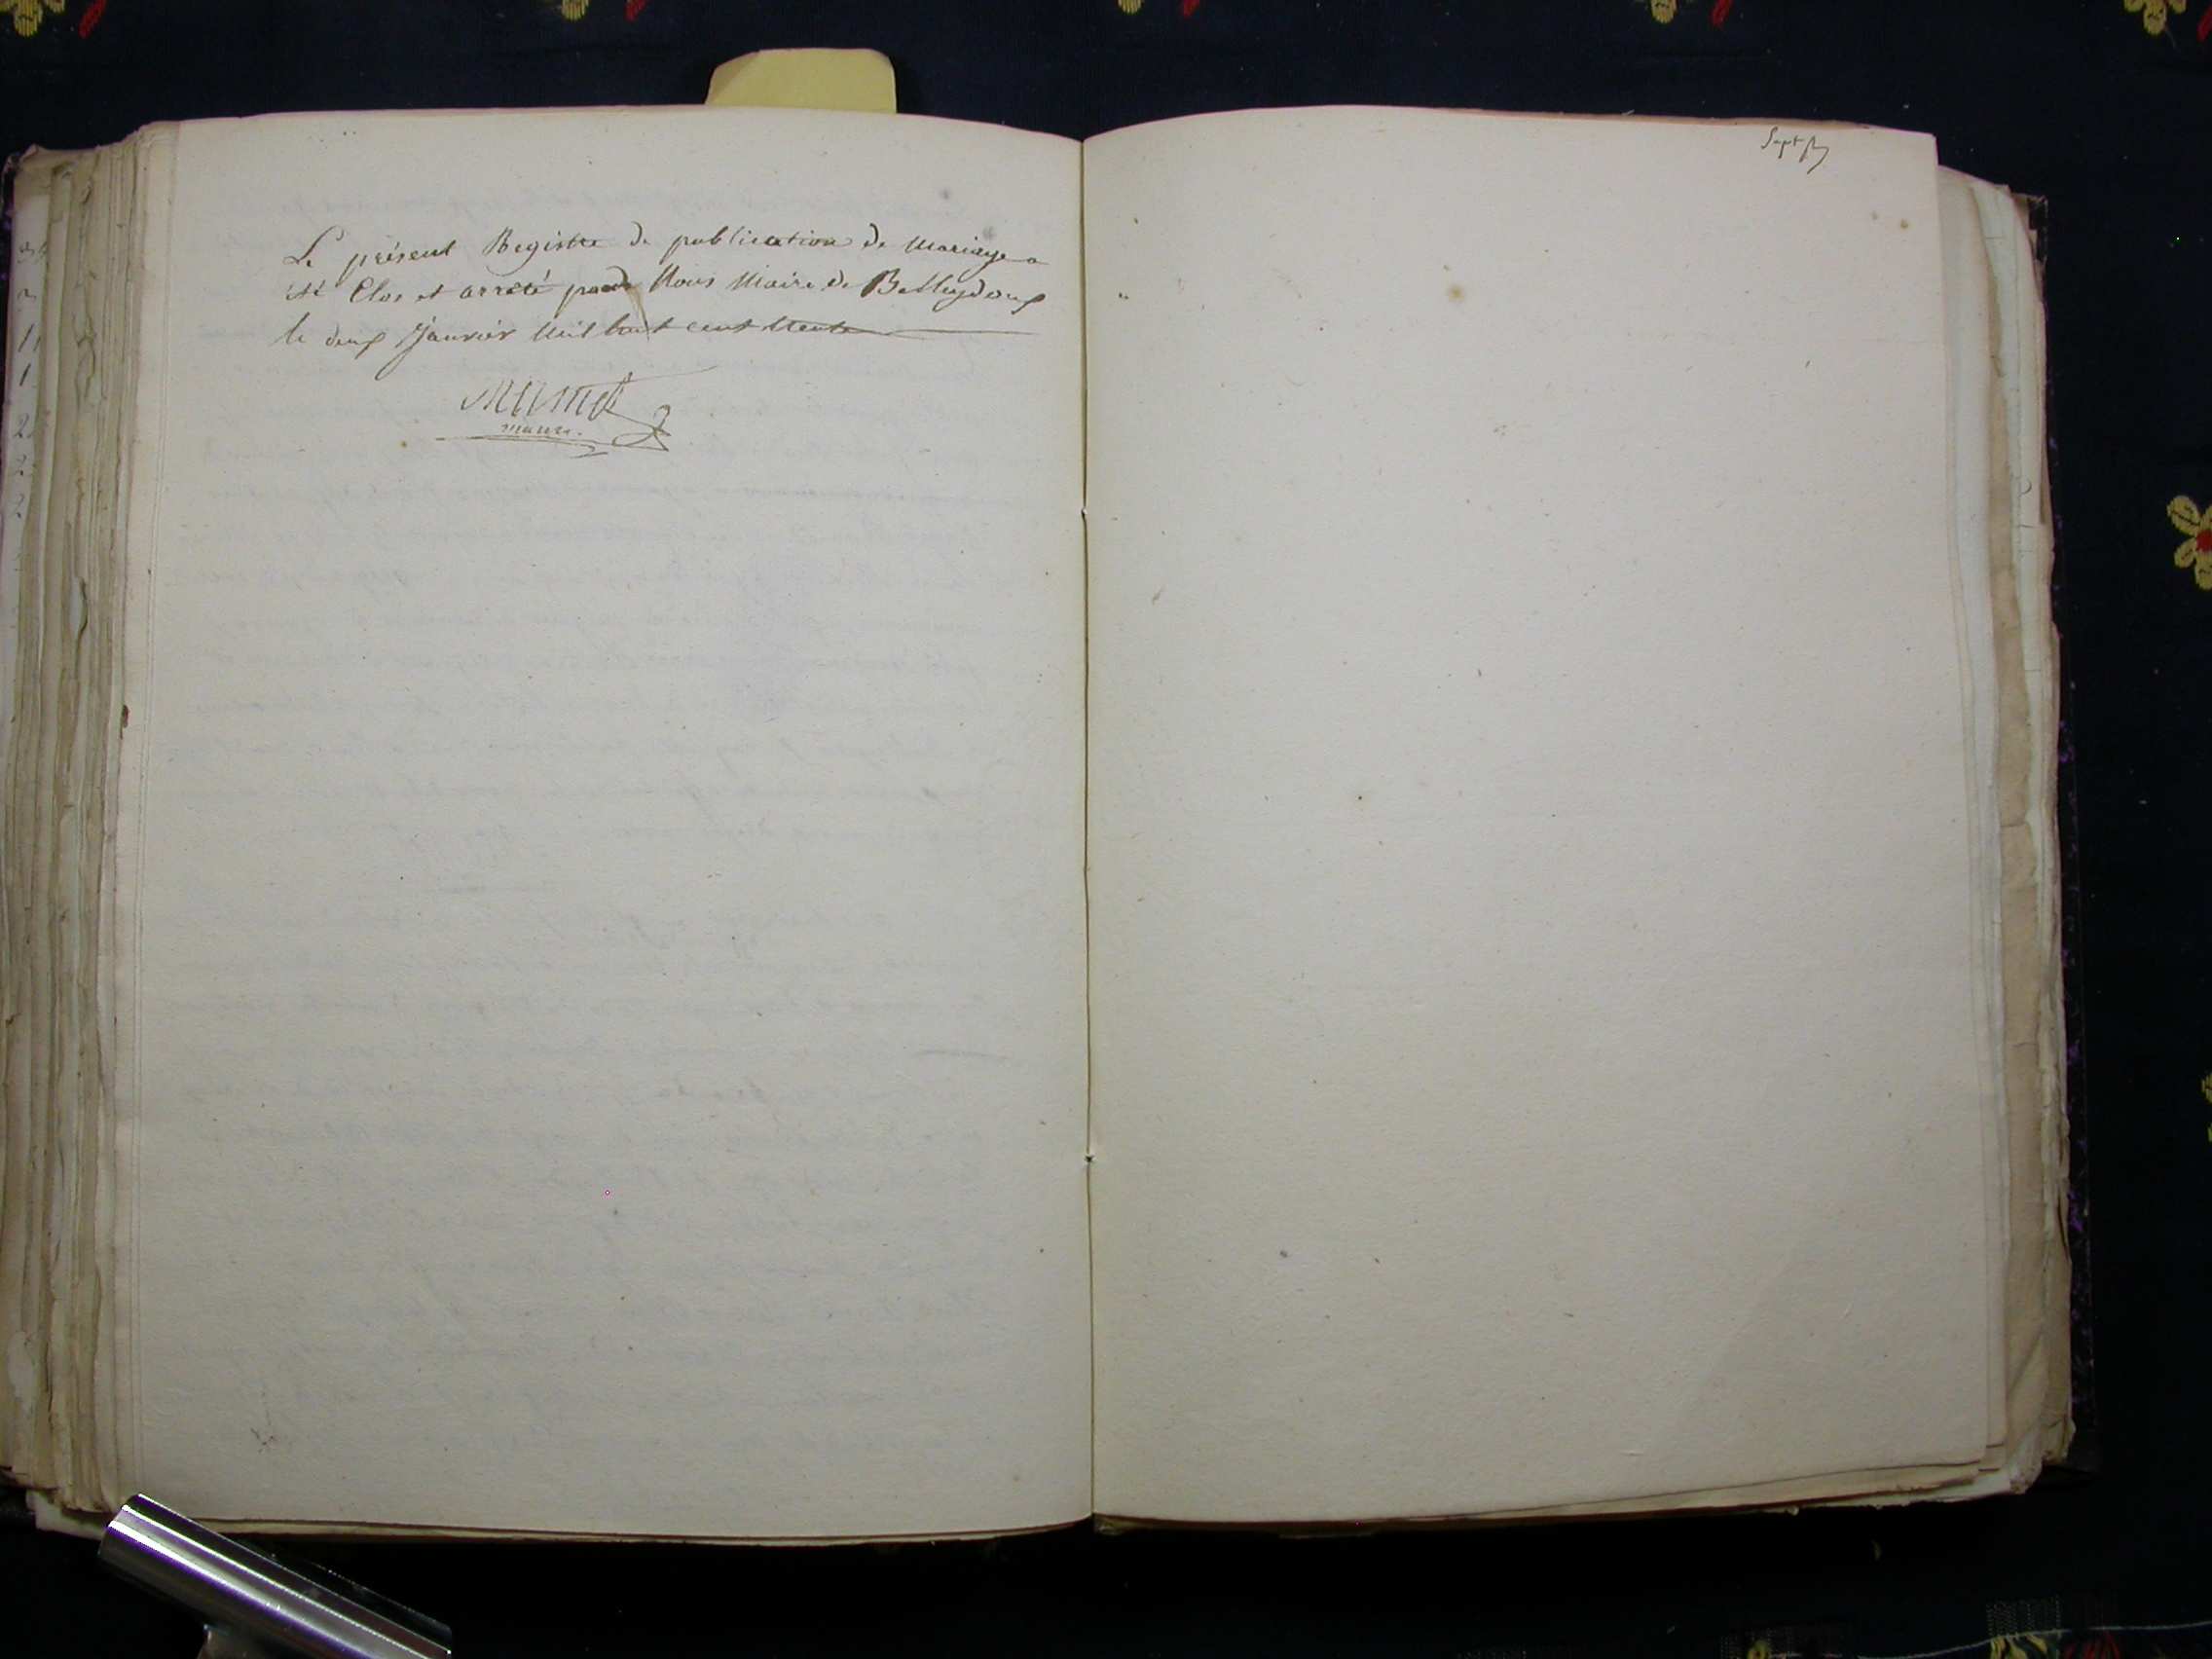 Le présent Registre de publication de Mariage a
été Clos et arrêté par Nous Maire de Belleydoux
le deux Janvier Mil huit cent trente
maire.
Sept